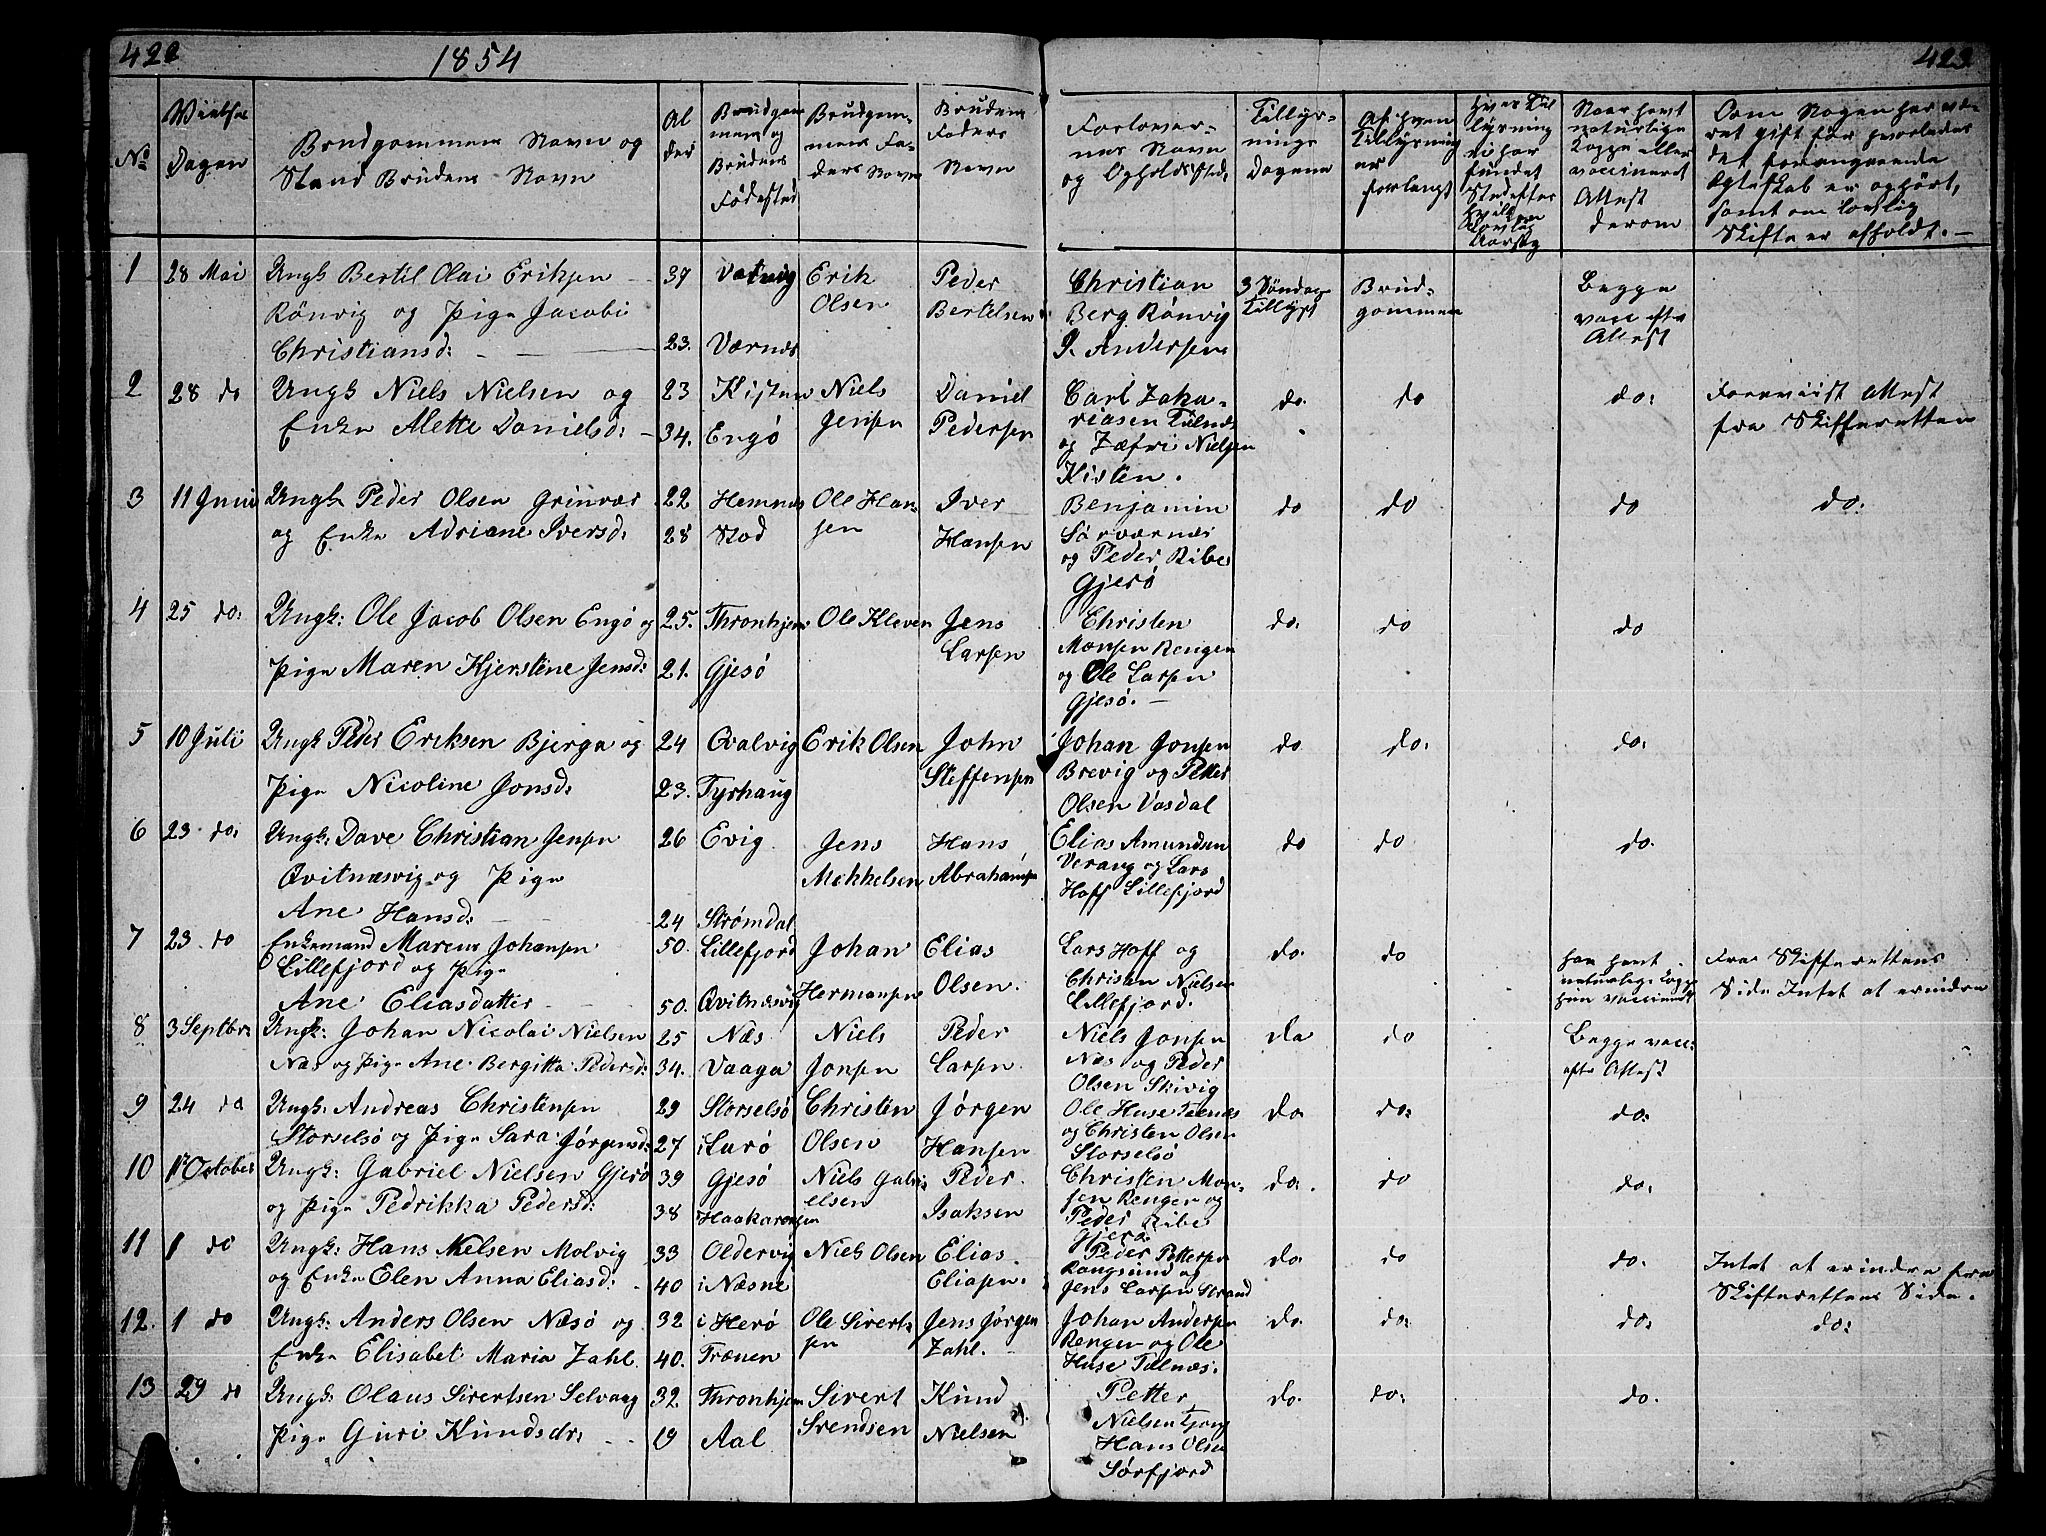 422
1854
423
No
Vielses Dagen
Brudgommens Navn og Stand Brudens Navn
Alder
Brudgommens og Brudens Fødested
Brudgommens Faders Navn
Brudens Faders Navn
Forlovernes Navn og Opholdssted
Tillysnings Dagene
Af hvem Tillysning er forlangt
Naar havt naturlige Kopper eller vaccineret Attest derom
Om Nogen har været gift før hvorledes det foregaaende Ægteskab er ophørt, samt om lovlig Skifte er afholdt. —
1 28 Mai Ungk Bertil Olai Eriksen 37 Vatvig Erik Peder Christian 3 Søndage Brud- Begge
Rönvig og Pige Jacobi Olsen Bertelsen Berg Rönvig Tillyst gommen vacc efter
Christiansd: 23. Værnæs J. Andersen Attest
2 28 do Ungk Niels Nielsen og 23 Kisten Niels Daniel Carl Zaka- do do do: Foreviist Attest
Enke Alette Danielsd: 34. Engö Jensen Pedersen riasen Tülnæs fra Skifteretten
og Zefri Nielsen
Kisten.
3 11 Juni Ungk Peder Olsen Grinvær 22 Hemnes Ole Han- Iver Benjamin do do do do.
og Enke Adriane Iversd: 28 Stod sen Hansen Sörværnæs
og Peder Ribe
Gjerö
4 25 do: Ungk: Ole Jacob Olsen Engö og 25. Thronhjem Ole Kleven Jens Christen do. do do
Pige Maren Kjerstine Jensd: 21. Gjesö Larsen Monsen Rengen
og Ole Larsen
Gjesö. —
5 10 Juli Ungk Peder Eriksen Bjerga og 24 Qvalvig Erik Olsen John Johan Jonsen do do. do.
Pige Nicoline Jonsd: 23. Tyrhaug Steffensen Brevig og Petter
Olsen Vasdal
6 23 do: Ungk: Dave Christian Jensen 26 Evig Jens Hans Elias Amundsen do do do.
Qvitnæsvig og Pige Mekkelsen Abrahamsen Verang og Lars
Ane Hansd: 24 Strømdal Hoff Lillefjord
7 23 do Enkemand Marcus Johansen 50. Lillefjord Johan Elias Lars Hoff og do. do har havt Fra Skifterettens
Lillefjord og Pige Hermansen Olsen. Christen Nielsen naturlige Kopper Side Intet at erindre
Ane Eliasdatter 50. Qvitnæsvig Lillefjord. hun vaccineret
8 3 Septbr: Ungk: Johan Nicolai Nielsen 25 Næs Niels Peder Niels Jonsen do do Begge vacc:
Næs og Pige Ane Bergitta Pedersd: 34. Vaaga Jonsen Larsen Næs og Peder efter Attest
Olsen Skivig
9 24 do Ungk: Andreas Christensen 29 Storselsö Christen Jørgen Ole Huse Tülnæs do do: do:
Storselsö og Pige Sara Jørgensd: 27 i Lurö Olsen Hansen og Christen Olsen
Storselsö
10 1 October Ungk: Gabriel Nielsen Gjesö 39 Gjesö Niels Gabri- Peder Christen Mon- do. do do.
og Pige Pedrikka Pedersd: 38 elsen Isaksen sen Rengen og
Peder Ribe
Gjerö
11 1 do Ungk: Hans Nielsen Molvig 33 Oldervig Niels Olsen Elias Peder Pettersen do. do do. Intet at erindre fra
og Enke Elen Anna Eliasd: 40 i Næsne Eliasen. Rangsund og Skifterettens Side.
Jens Larsen Strand
12. 1 do Ungk: Anders Olsen Næsö og 32 i Herö Ole Sivert- Jens Jörgen Johan Andersen do. do: do: do:
Enke Elisabet Maria Zahl 40. Trænen sen Zahl. Rengen og Ole
Huse Tülnæs.
13 29 do Ungk: Olaus Sivertsen Selvaag 32. Thronhjem Sivert Knud Petter do. do: do.
Pige Guri Knudsdr: 19 Aal Svendsen Nielsen Nielsen Tjong
Hans Olsen
Sörfjord